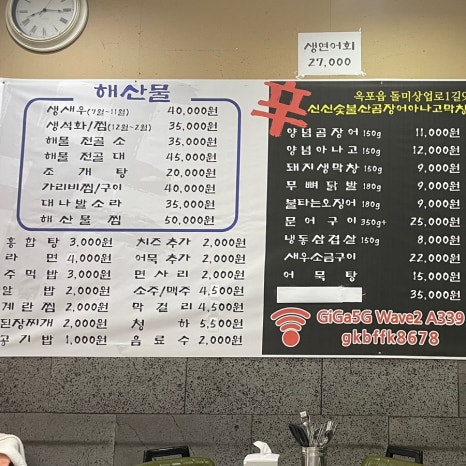 생연어회
27,000
해산물
생새우(7월~11월) 40,000원
생석화/찜(12월~2월) 35,000원
해물 전골 소 35,000원
해물 전골 대 45,000원
조개탕 20,000원
가리비찜/구이 40,000원
대나발소라 35,000원
해산물찜 50,000원
홍합탕 3,000원 치즈추가 2,000원
라면 4,000원 어묵추가 2,000원
주먹밥 3,000원 면사리 2,000원
알밥 2,000원 소주/맥주 4,500원
계란찜 2,000원 막걸리 4,500원
된장찌개 2,000원 청하 5,500원
공기밥 1,000원 음료수 2,000원
辛
옥포읍 돌미상업로1길
신신숯불산곰장어아나고막창
양념곰장어 150g 11,000원
양념아나고 150g 12,000원
돼지생막창 150g 9,000원
무뼈닭발 180g 9,000원
불타는오징어 180g 9,000원
문어구이 350g+ 25,000원
냉동삼겹살 150g 8,000원
새우소금구이 22,000원
어묵탕 15,000원
35,000원
GiGa5G Wave2 A339
gkbffk8678